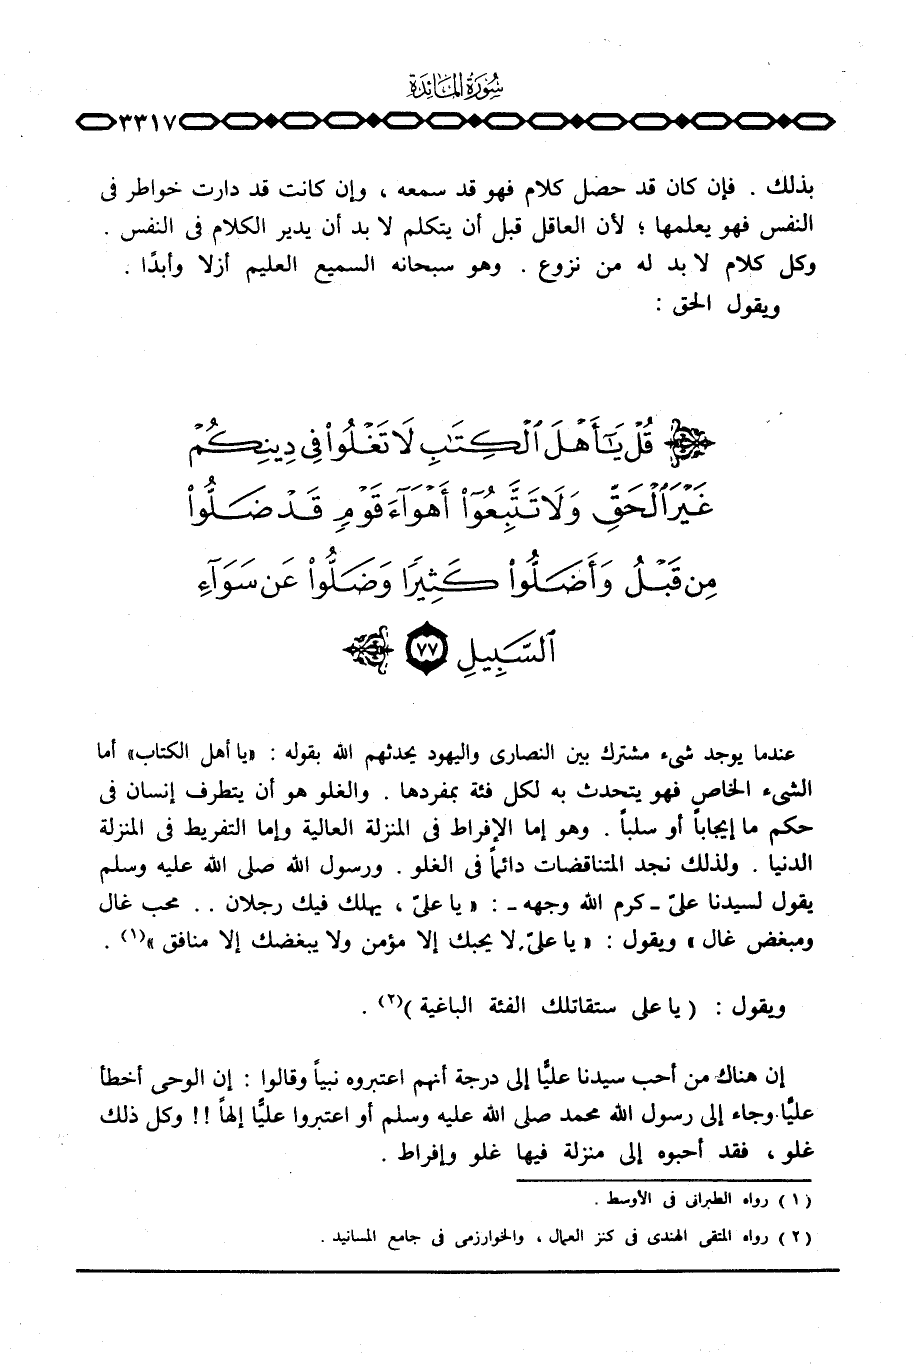 سُورَةُ المَائدَة
٣٣١٧
بذلك . فإن كان قد حصل كلام فهو قد سمعه ، وإن كانت قد دارت خواطر فى
النفس فهو يعلمها ؛ لأن العاقل قبل أن يتكلم لا بد أن يدير الكلام فى النفس .
وكل كلام لا بد له من نزوع . وهو سبحانه السميع العليم أزلا وأبدًا .
ويقول الحق :
قُلْ يَٰٓأَهْلَ ٱلْكِتَٰبِ لَا تَغْلُوا۟ فِى دِينِكُمْ
غَيْرَ ٱلْحَقِّ وَلَا تَتَّبِعُوٓا۟ أَهْوَآءَ قَوْمٍ قَدْ ضَلُّوا۟
مِن قَبْلُ وَأَضَلُّوا۟ كَثِيرًا وَضَلُّوا۟ عَن سَوَآءِ
ٱلسَّبِيلِ ٧٧
عندما يوجد شىء مشترك بين النصارى واليهود يحدثهم الله بقوله : «يا أهل الكتاب» أما
الشىء الخاص فهو يتحدث به لكل فئة بمفردها . والغلو هو أن يتطرف إنسان فى
حكم ما إيجاباً أو سلباً . وهو إما الإفراط فى المنزلة العالية وإما التفريط فى المنزلة
الدنيا . ولذلك نجد المتناقضات دائماً فى الغلو . ورسول الله صلى الله عليه وسلم
يقول لسيدنا علىّ ـ كرم الله وجهه ـ : « يا علىّ ، يهلك فيك رجلان .. محب غال
ومبغض غال » ويقول : « يا علىّ لا يحبك إلا مؤمن ولا يبغضك إلا منافق »(١) .
ويقول : ( يا على ستقاتلك الفئة الباغية )(٢) .
إن هناك من أحب سيدنا عليًّا إلى درجة أنهم اعتبروه نبياً وقالوا : إن الوحى أخطأ
عليًّا وجاء إلى رسول الله محمد صلى الله عليه وسلم أو اعتبروا عليًّا إلهاً !! وكل ذلك
غلو ، فقد أحبوه إلى منزلة فيها غلو وإفراط .
( ١ ) رواه الطبرانى فى الأوسط .
( ٢ ) رواه المتقى الهندى فى كنز العمال ، والخوارزمى فى جامع المسانيد .